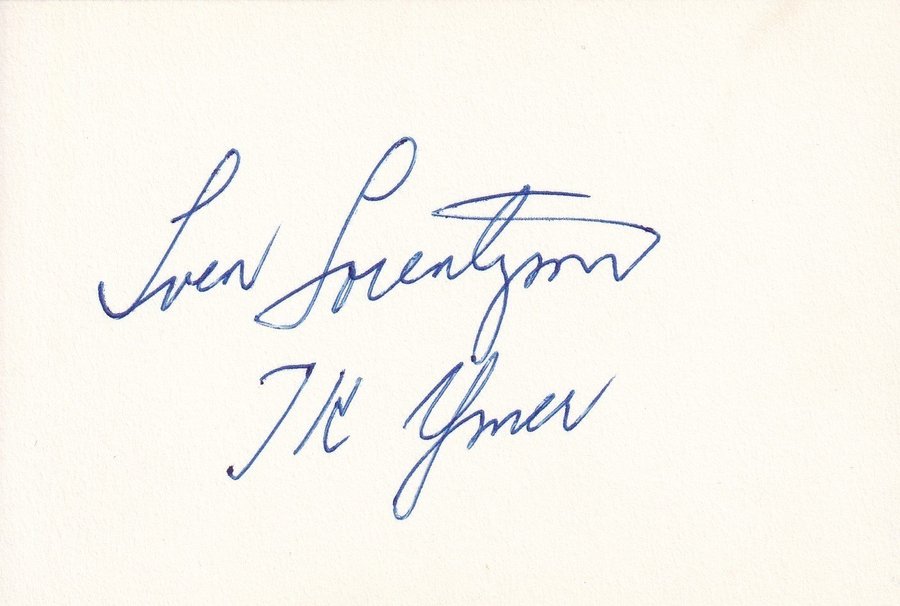 Sven Lorentzon
IK Ymer